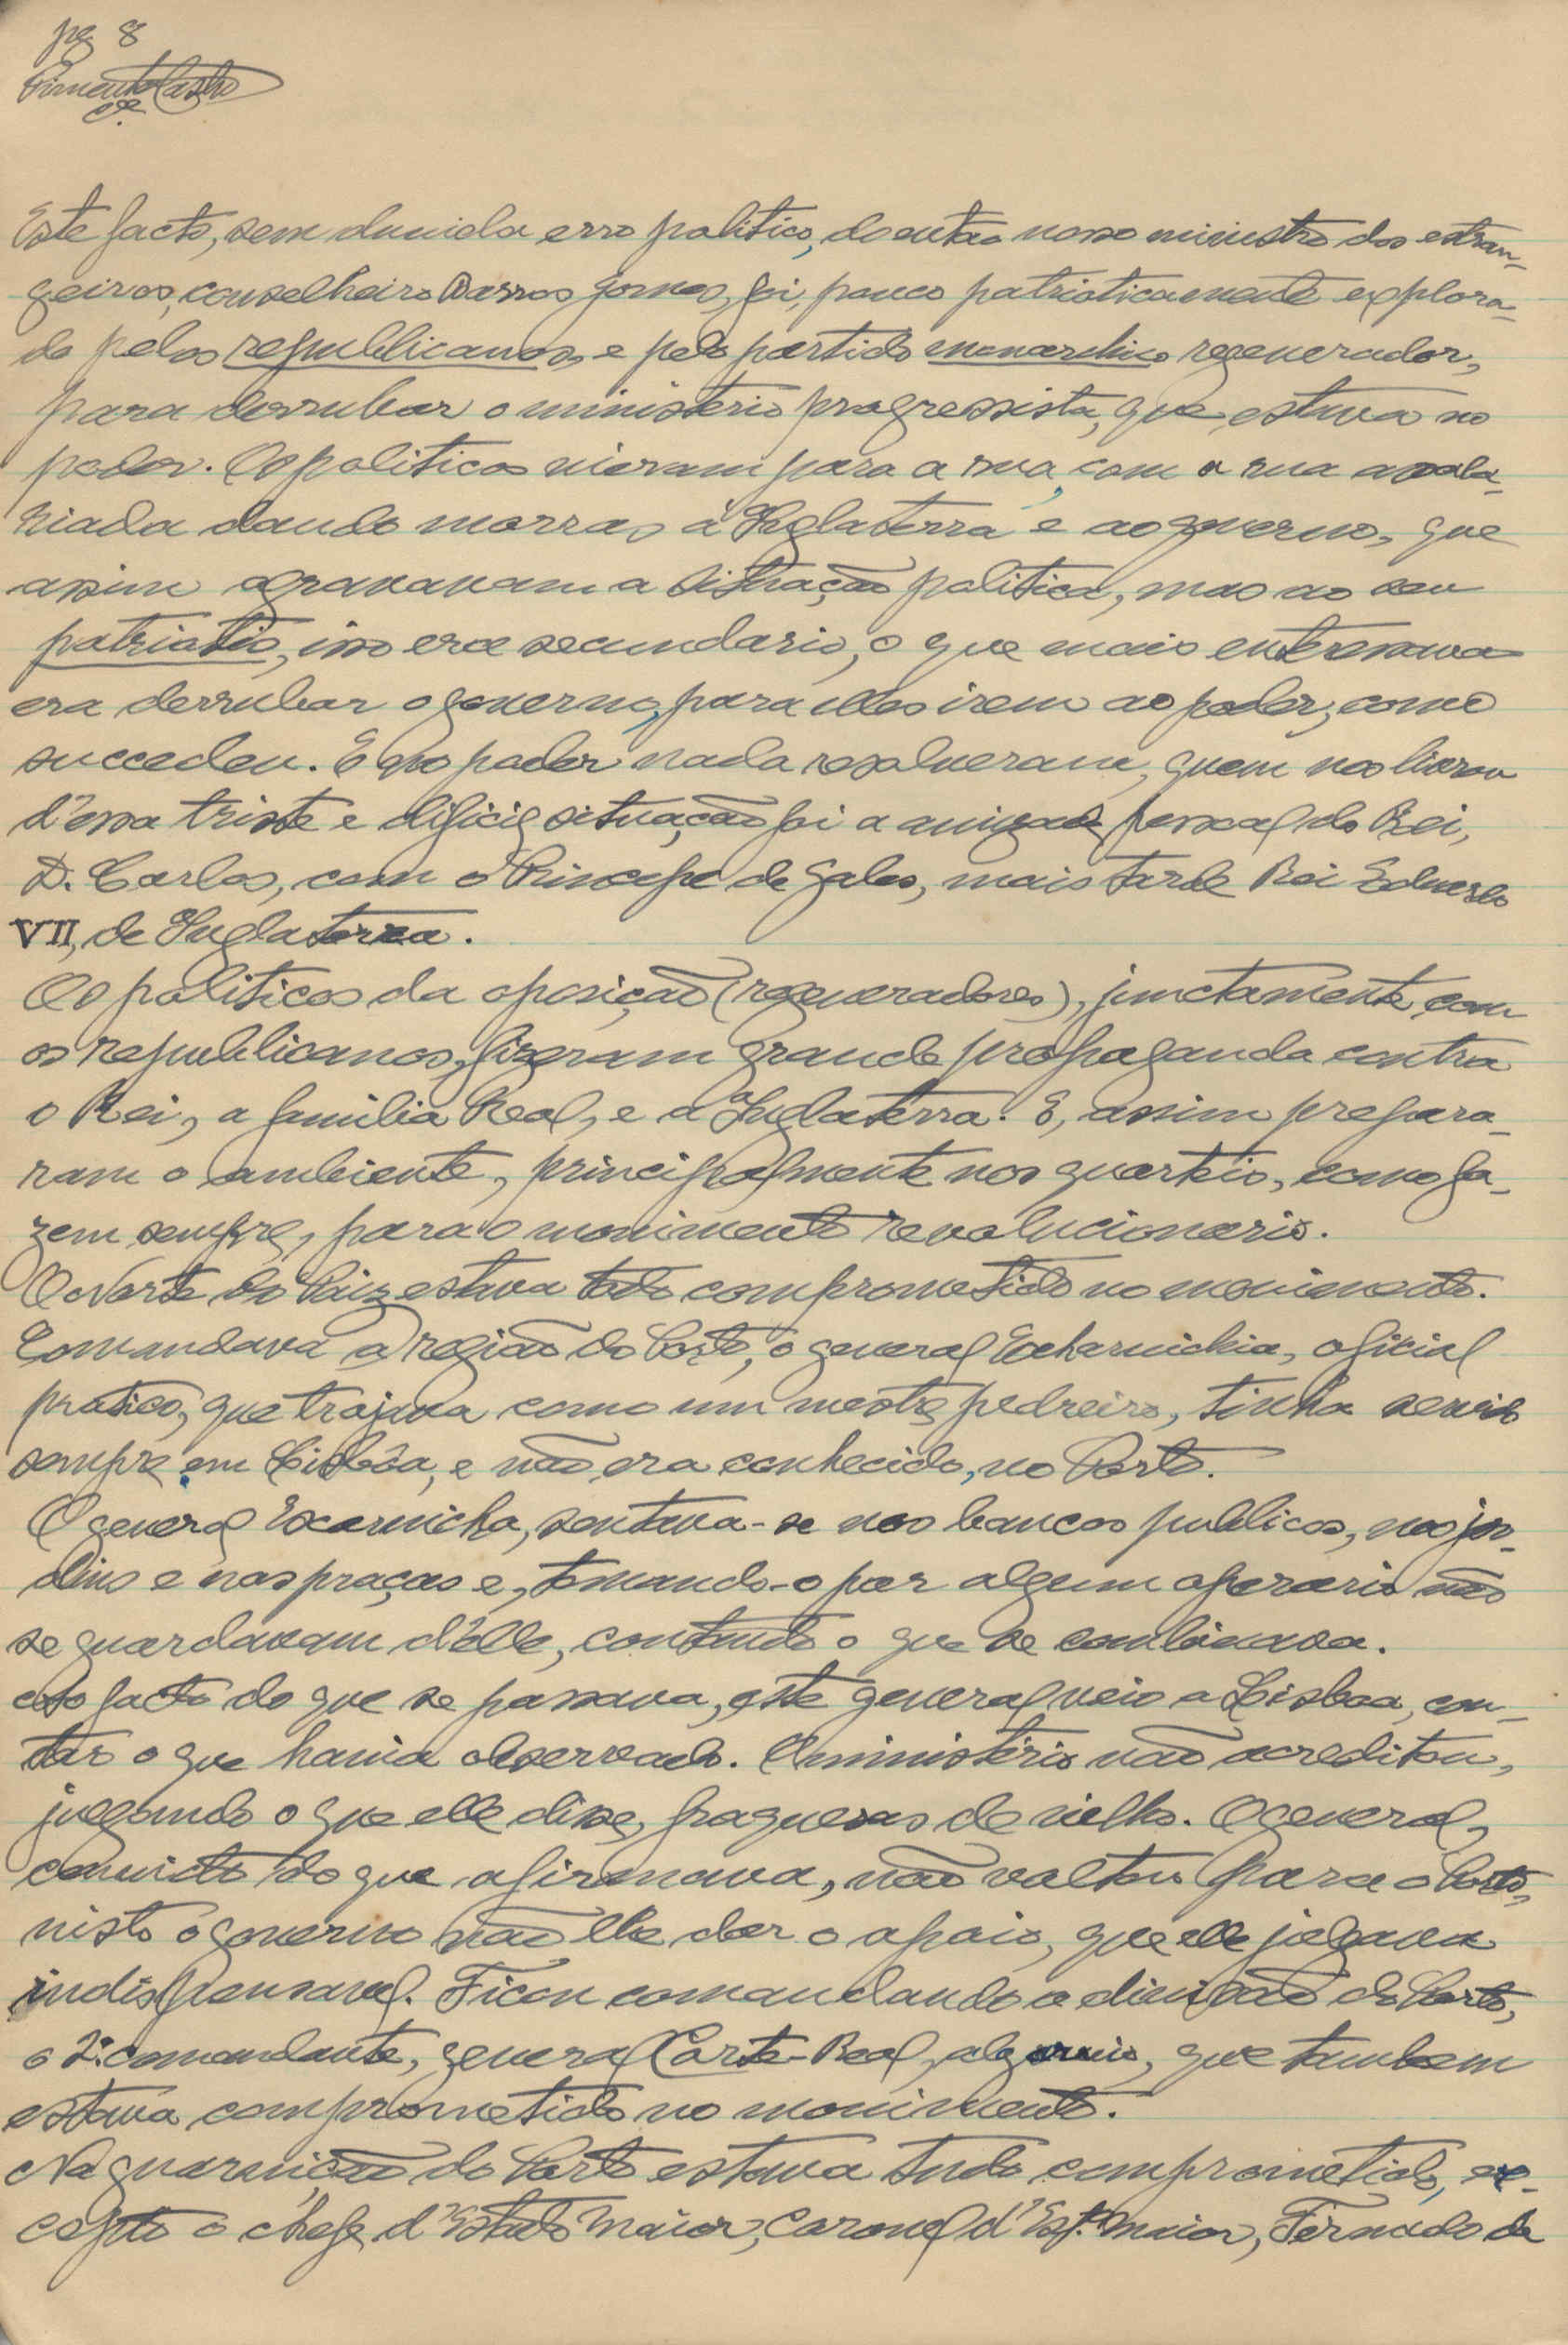 pg 8
Pimenta Castro
Este facto, sem duvida erro politico, do então nosso ministro dos estran-
geiros, conselheiro Barros Gomes, foi, pouco patrioticamente explora-
do pelos republicanos, e pelo partido monarchico regenerador,
para derrubar o ministerio progressista, que estava no
poder. Os politicos vieram para a rua, com a rua assala-
riada dando morras á Inglaterra e ao governo, que
assim agravavam a situação politica, mas ao seu
patriotis, isso era secundario, o que mais enteressava
era derrubar o governo, para elles irem ao poder, como
succedeu. E no poder nada resolveram, quem nos livrou
d'essa triste e dificil situação foi a amizade pessoal do Rei,
D. Carlos, com o Principe de Gales, mais tarde Rei Eduardo
VII, de Inglaterra.
Os politicos da oposição (regeneradores), junctamente com
os republicanos, fizeram grande propaganda contra
o Rei, a familia Real, e a Inglaterra. E, assim prepara-
ram o ambiente, principalmente nos quarteis, como fa-
zem sempre, para o movimento revolucionario.
O Norte do Paiz estava todo comprometido no movimento.
Comandava a região do Porto, o general Scharnichia, oficial
pratico, que trajava como um mestre pedreiro, tinha servido
sempre em Lisbôa, e não era conhecido, no Porto.
O general Scarnicha, sentava-se nos bancos publicos, nos jar-
dins e nas praças e, tomando-o por algum operario não
se guardavam d'elle, contando o que se combinava.
Ao facto do que se passava, este general veio a Lisboa, con-
tar o que havia observado. O ministério não acreditou,
julgando o que elle disse, fraquesas de velho. O general,
convicto do que afirmava, não voltou para o Porto,
visto o governo não lhe dar o apoio, que elle julgava
indispensavel. Ficou comandando a divisão do Porto,
o 2º comandante, general Corte-Real, algarvio, que tambem
estava comprometido no movimento.
Na guarnição do Porto estava tudo comprometido, ex-
cepto o chefe d'Estado Maior, Coronel d'Est.º Maior, Fernado de